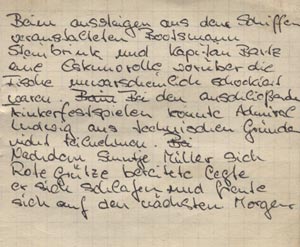 Beim aussteigen aus dem Schiffen
veranstalteten Bootsmann
Steinbrink und Kapitän Bartz
eine Eskimorolle worüber die
Fische unwarscheinlich schockiert
waren. Bei den anschließenden
Trinkerfestspielen konnte Admiral
Ludwig aus technischen Gründen
nicht teilnehmen. Bei
Nachdem Smutje Miller sich
Rote Grütze bereitete legte
er sich schlafen und freute
sich auf den nächsten Morgen.